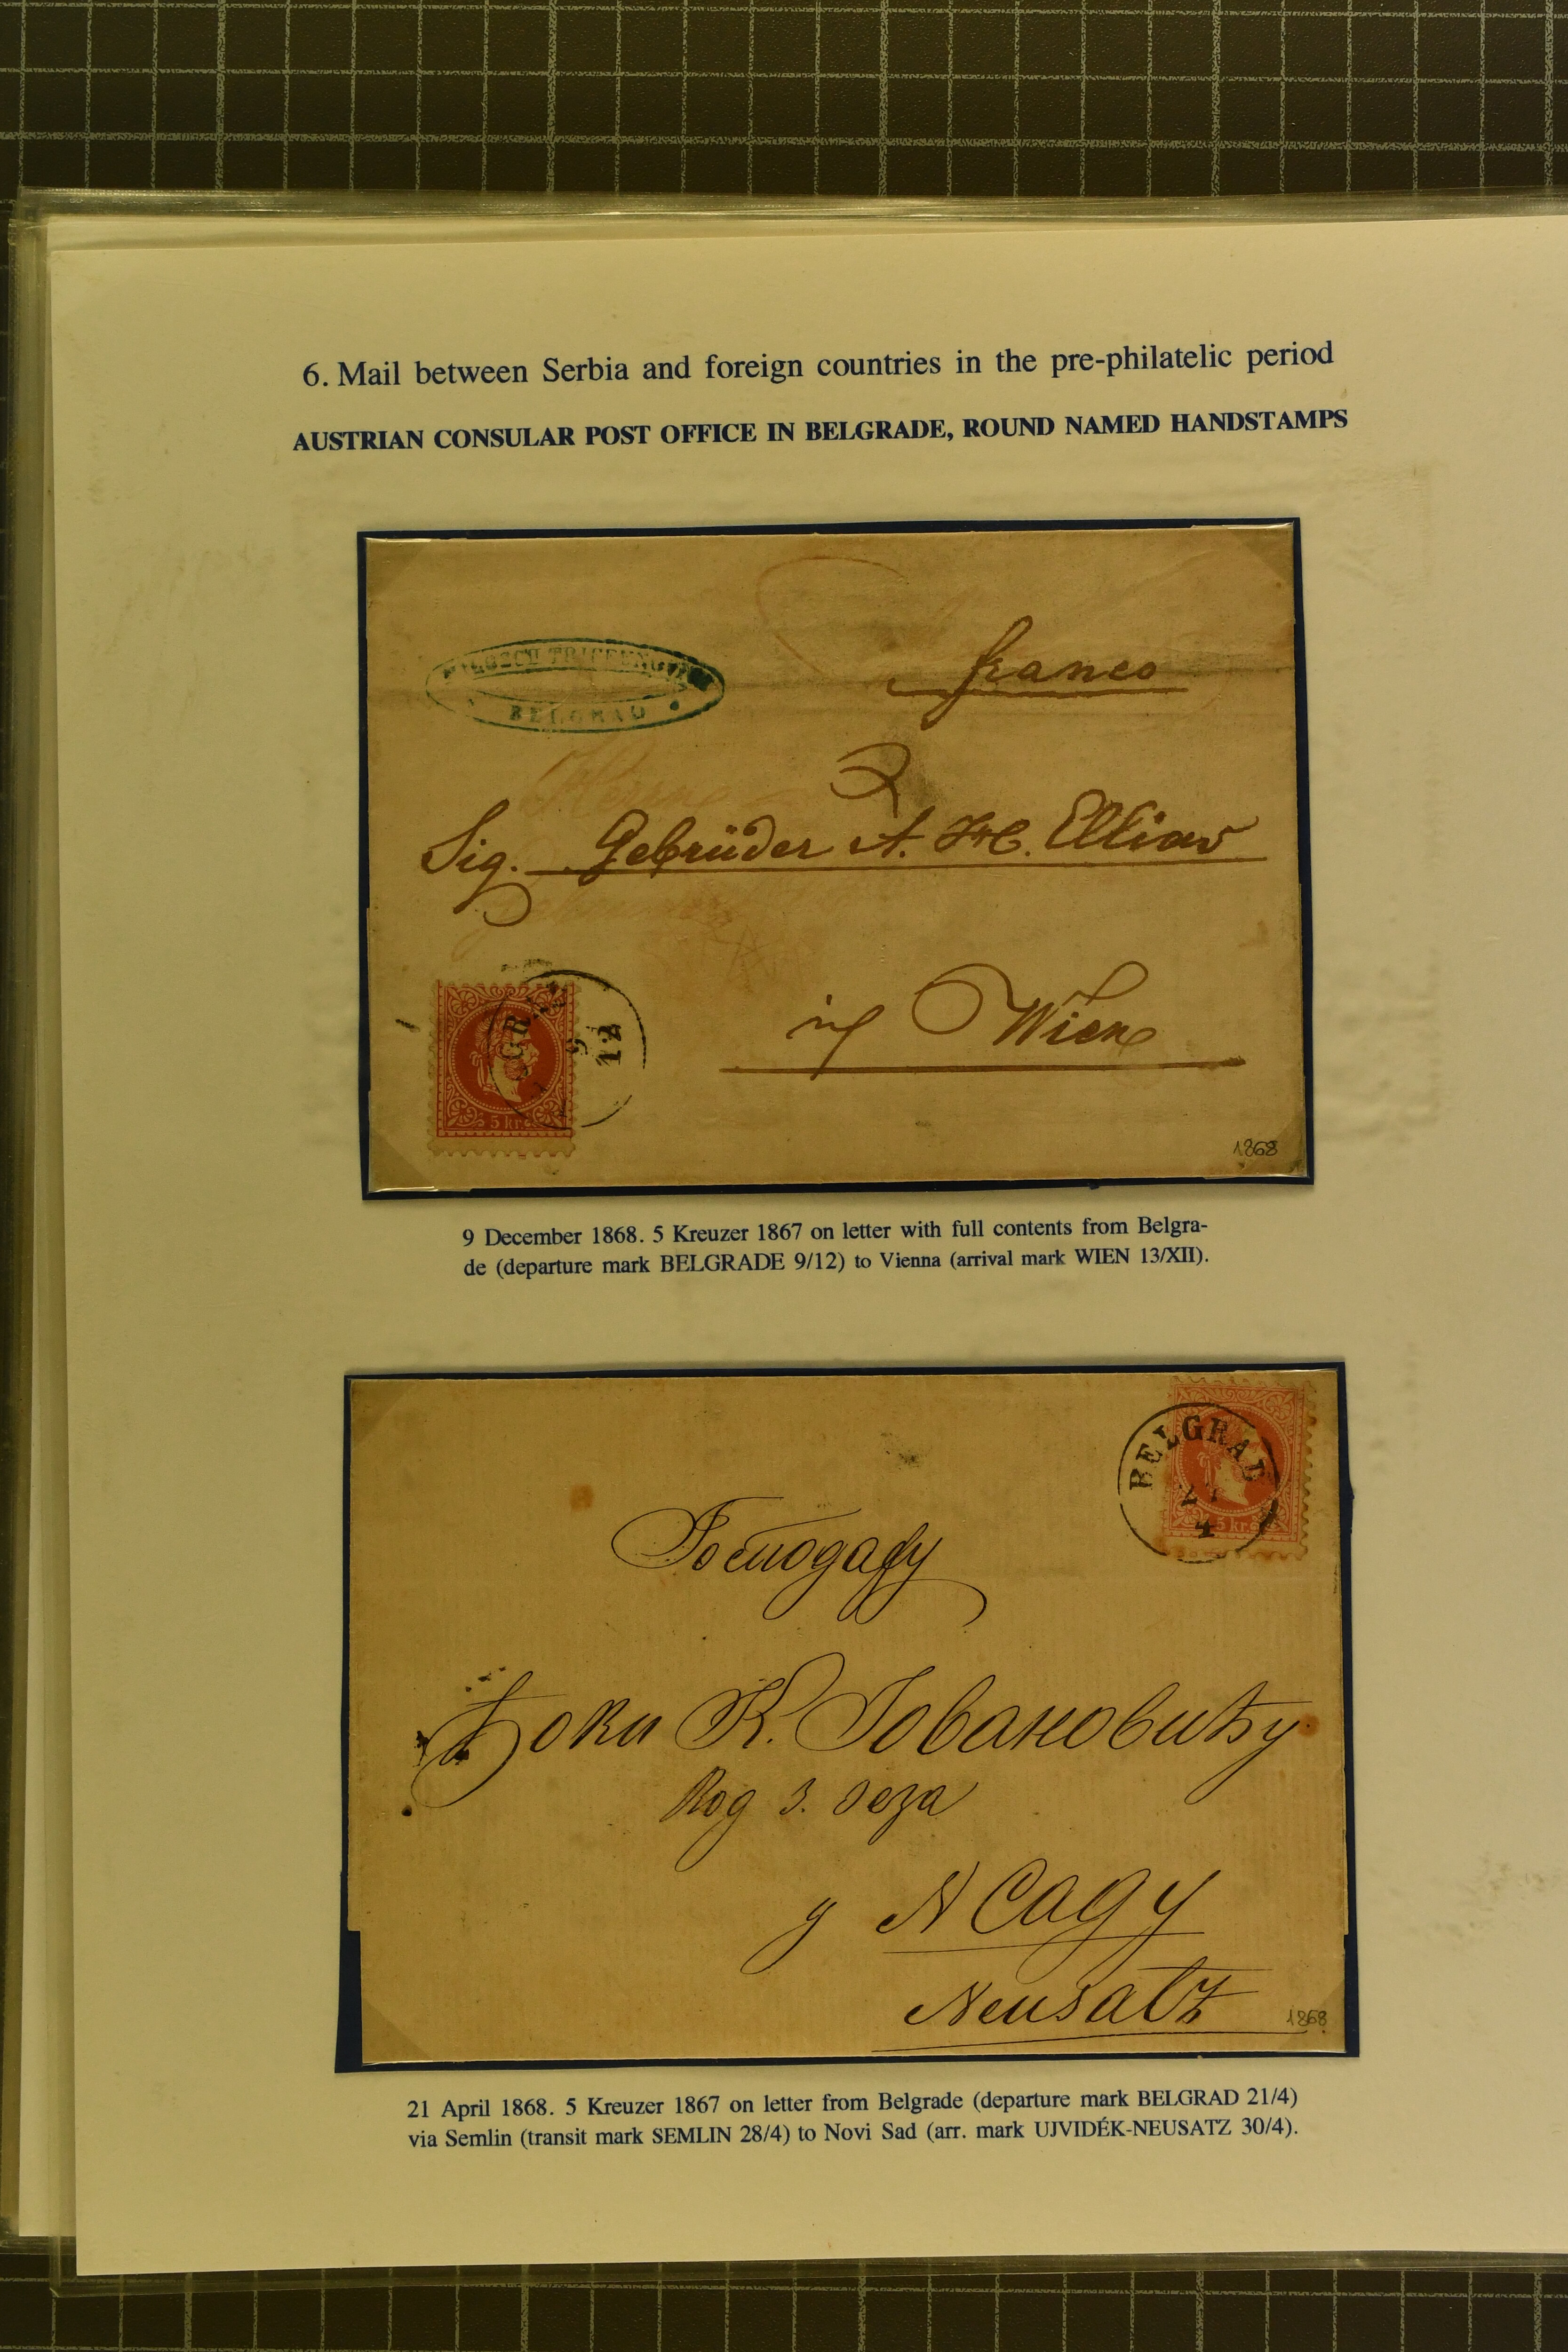 6. Mail between Serbia and foreign countries in the pre-philatelic period
AUSTRIAN CONSULAR POST OFFICE IN BELGRADE, ROUND NAMED HANDSTAMPS
BELGRAD
franco
Sig. Gebrüder A. Elias
Wien
9
12
5 kr
1868
9 December 1868. 5 Kreuzer 1867 on letter with full contents from Belgra-
de (departure mark BELGRADE 9/12) to Vienna (arrival mark WIEN 13/XII).
BELGRAD
4
5 kr
Господару
Ђоки К. Јовановићу
код З.
у N Саду
Neusatz
1868
21 April 1868. 5 Kreuzer 1867 on letter from Belgrade (departure mark BELGRAD 21/4)
via Semlin (transit mark SEMLIN 28/4) to Novi Sad (arr. mark UJVIDÉK-NEUSATZ 30/4).